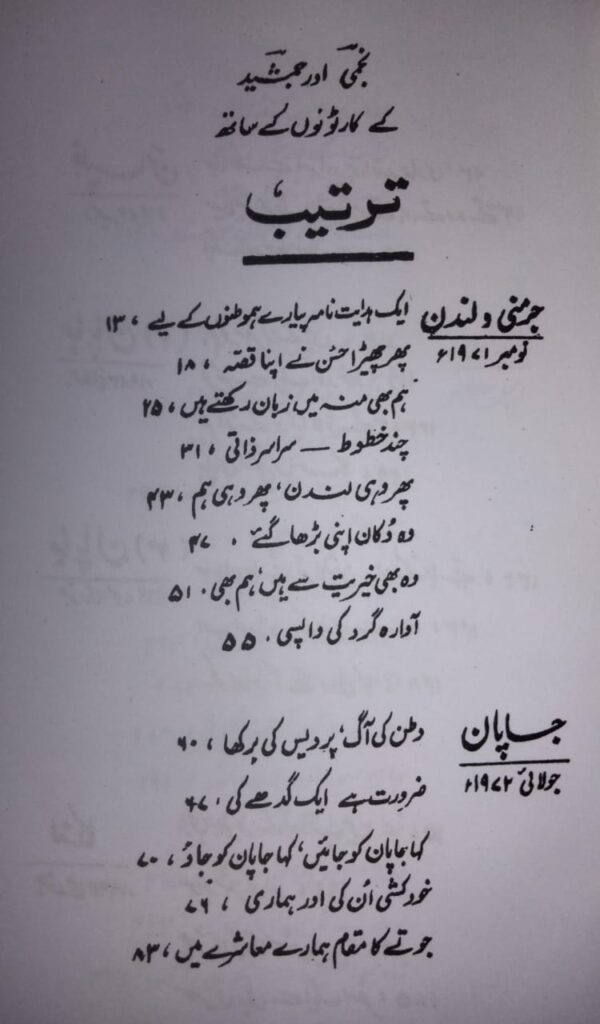 نجمی اور جمشید
کے کارٹونوں کے ساتھ
ترتیب
جرمنی و لندن
نومبر ۱۹۷۱ء
ایک ہدایت نامہ پیارے ہموطنوں کے لیے ، ۱۳
پھر چھیڑا حسن نے اپنا قصّہ ، ۱۸
ہم بھی منہ میں زبان رکھتے ہیں ، ۲۵
چند خطوط — سراسر ذاتی ، ۳۱
پھر وہی لندن، پھر وہی ہم ، ۴۳
وہ دُکان اپنی بڑھا گئے ، ۴۷
وہ بھی خیریت سے ہیں، ہم بھی ، ۵۱
آوارہ گرد کی واپسی ، ۵۵
جاپان
جولائی ۱۹۷۲ء
وطن کی آگ، پردیس کی برکھا ، ۶۰
ضرورت ہے ایک گدھے کی ، ۶۷
کہا جاپان کو جائیں، کہا جاپان کو جاؤ ، ۷۰
خودکشی اُن کی اور ہماری ، ۷۶
جوتے کا مقام ہمارے معاشرے میں ، ۸۳